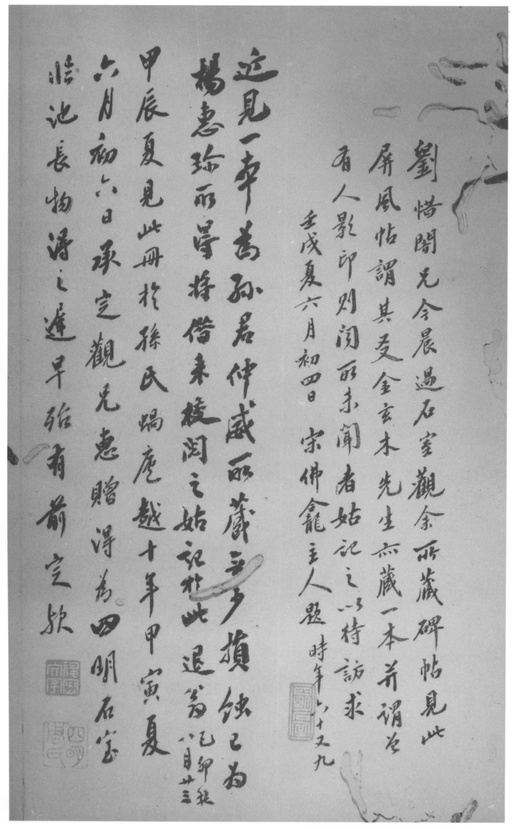 劉惜闇兄今晨過石室觀余所藏碑帖見此
屏風帖謂其友金玄木先生亦藏一本并謂曾
有人影印則聞所未聞者姑記之以待訪求
壬戌夏六月初四日 宋佛龕主人題 時年六十又九
近見一本為孫君仲威所藏無少損蝕已為
楊惠珍所得將借來校閱之姑記於此 退翁 乙卯秋八月廿三
甲辰夏見此冊於孫氏蝸廬越十年甲寅夏
六月初六日承定觀兄惠贈得為四明石室
臨池長物得之遲早殆有前定歟